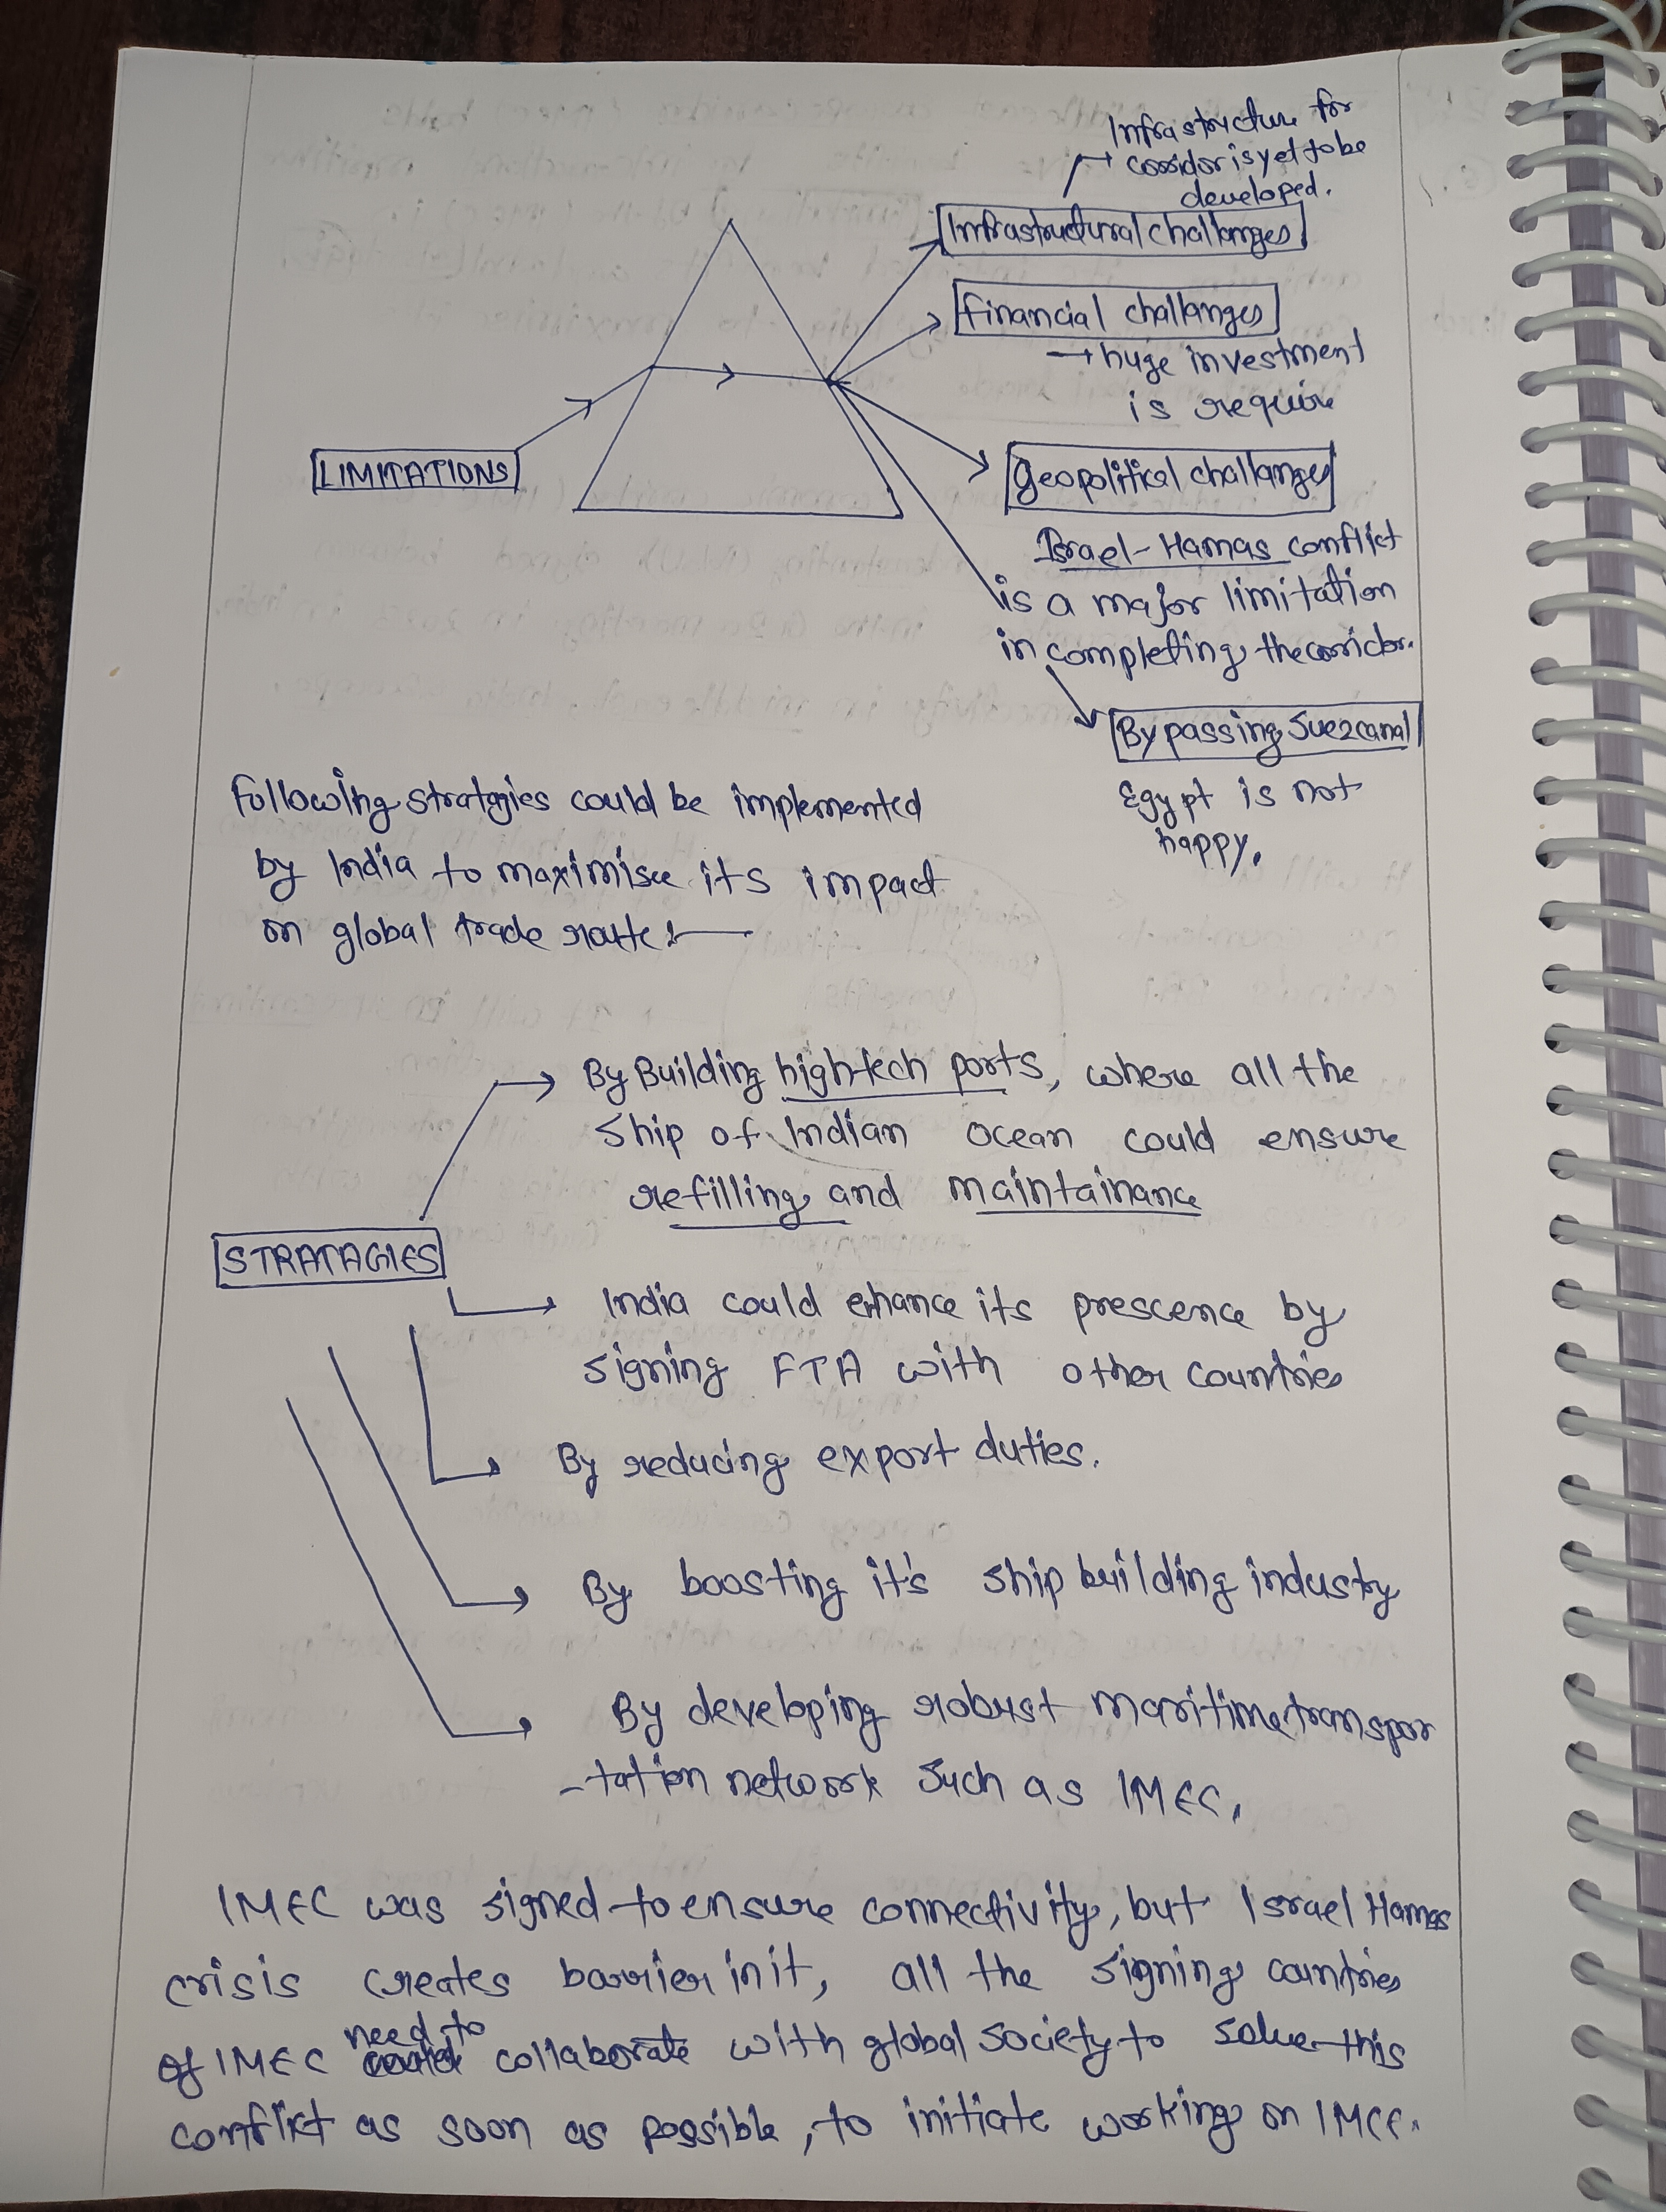 Infrastructure for
corridor is yet to be
developed.
Infrastructural challanges
financial challanges
→ huge investment
is require
LIMITATIONS
geopolitical challanges
Israel-Hamas conflict
is a major limitation
in completing the corridor.
By passing Suez canal
Egypt is not
happy.
following stratgies could be implemented
by India to maximise its impact
on global trade route:—
By Building high-tech ports, where all the
ship of Indian ocean could ensure
refilling and maintainance
STRATAGIES
India could enhance its prescence by
signing FTA with other countries
By reducing export duties.
By boosting it's ship building industry
By developing robust maritime transpor
-tation network such as IMEC.
IMEC was signed to ensure connectivity, but Israel Hamas
crisis creates barrier in it, all the signing countries
of IMEC need to collaborate with global society to solve this
conflict as soon as possible, to initiate working on IMEC.